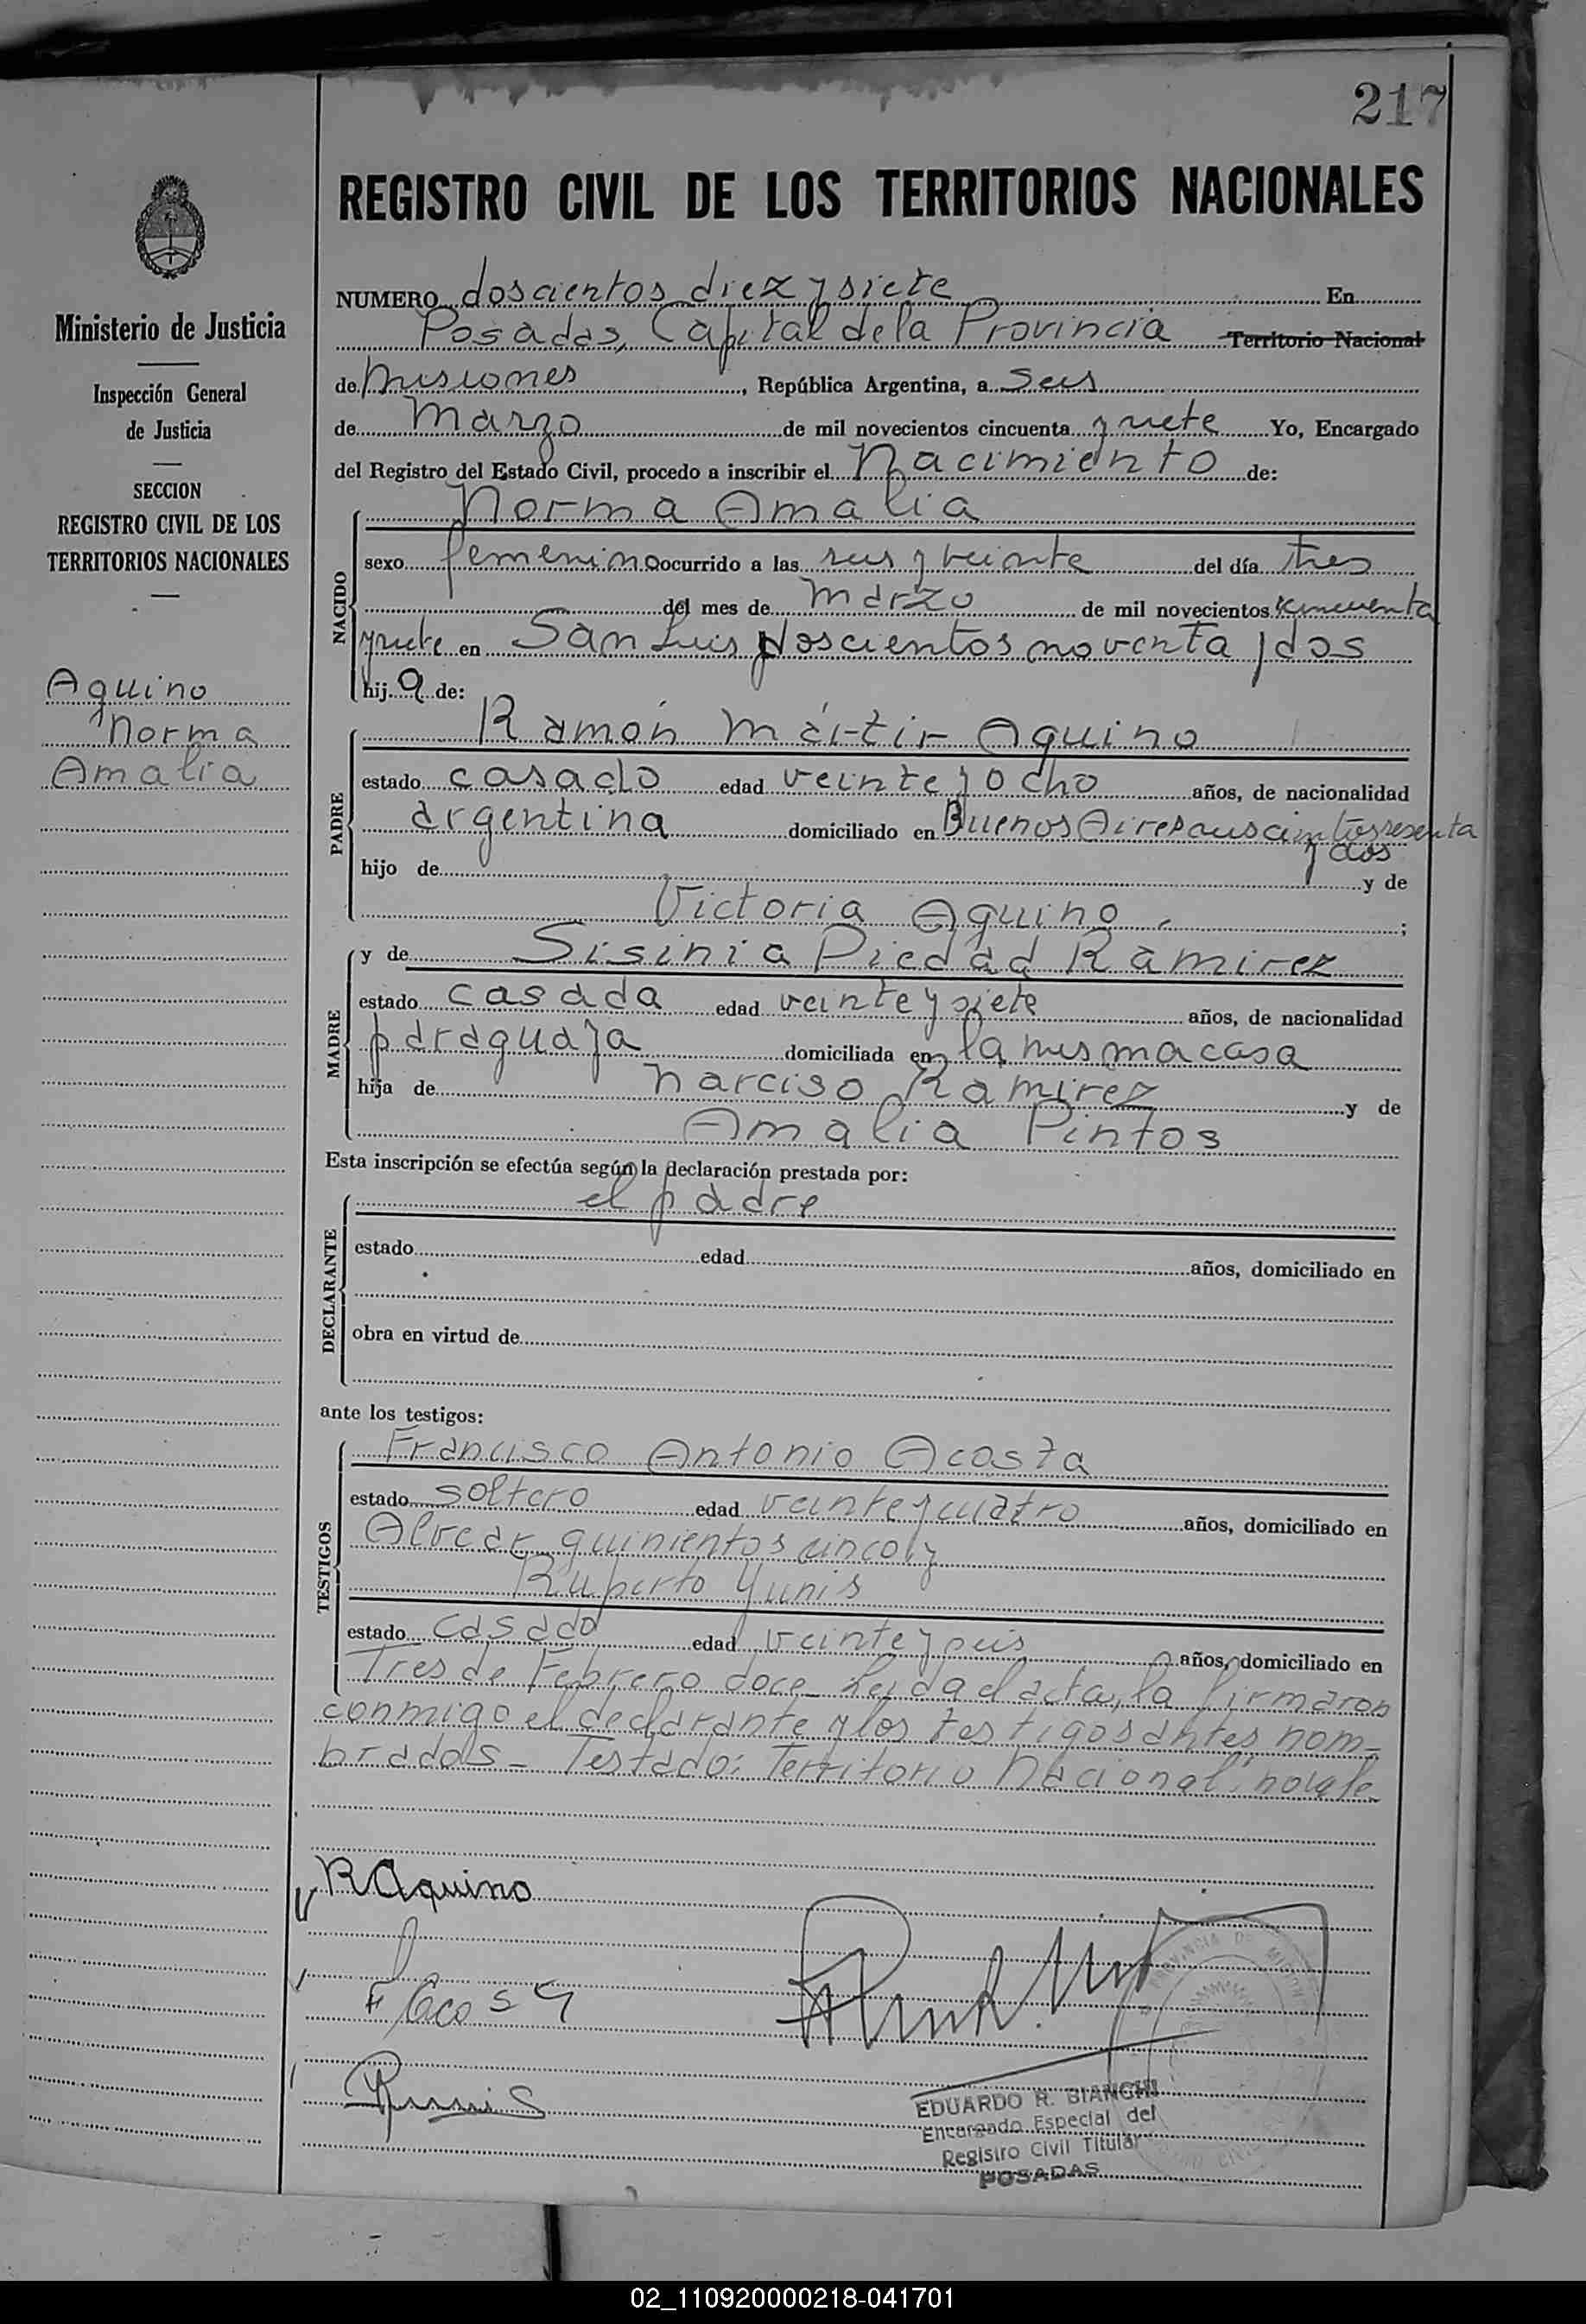 217
REGISTRO CIVIL DE LOS TERRITORIOS NACIONALES
Ministerio de Justicia
Inspección General
de Justicia
SECCION
REGISTRO CIVIL DE LOS
TERRITORIOS NACIONALES
Aquino
Norma
Amalia
NUMERO doscientos diez y siete En
Posadas, Capital de la Provincia Territorio Nacional
de Misiones, República Argentina, a seis
de Marzo de mil novecientos cincuenta y siete Yo, Encargado
del Registro del Estado Civil, procedo a inscribir el Nacimiento de:
NACIDO
Norma Amalia
sexo femenino ocurrido a las seis y veinte del día tres
del mes de Marzo de mil novecientos cincuenta
y siete en San Luis doscientos noventa y dos
hij a de:
PADRE
Ramón Mártir Aquino
estado casado edad veinte y ocho años, de nacionalidad
argentina domiciliado en Buenos Aires seiscientos sesenta
y dos
hijo de y de
Victoria Aquino. ;
MADRE
y de Sisinia Piedad Ramirez
estado casada edad veinte y siete años, de nacionalidad
paraguaya domiciliada en la misma casa
hija de Narciso Ramirez y de
Amalia Pintos
Esta inscripción se efectúa según la declaración prestada por:
DECLARANTE
el padre
estado edad años, domiciliado en
obra en virtud de
ante los testigos:
TESTIGOS
Francisco Antonio Acosta
estado soltero edad veinte y cuatro años, domiciliado en
Alvear quinientos cinco y
Ruperto Yunis
estado casado edad veinte y seis años, domiciliado en
Tres de Febrero doce_ Leida el acta, la firmaron
conmigo el declarante y los testigos antes nom-
brados_ Testado: Territorio Nacional: no vale_
RAquino
F Acosta
RYunis
PROVINCIA DE MISIONES
EDUARDO R. BIANCHI
Encargado Especial del
Registro Civil Titular
POSADAS
02_110920000218-041701